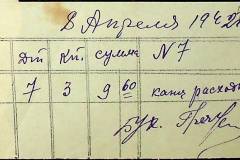 8 Апреля 1942
Дт Кт сумма N 7
7 3 9 60 канц расход
Бух.